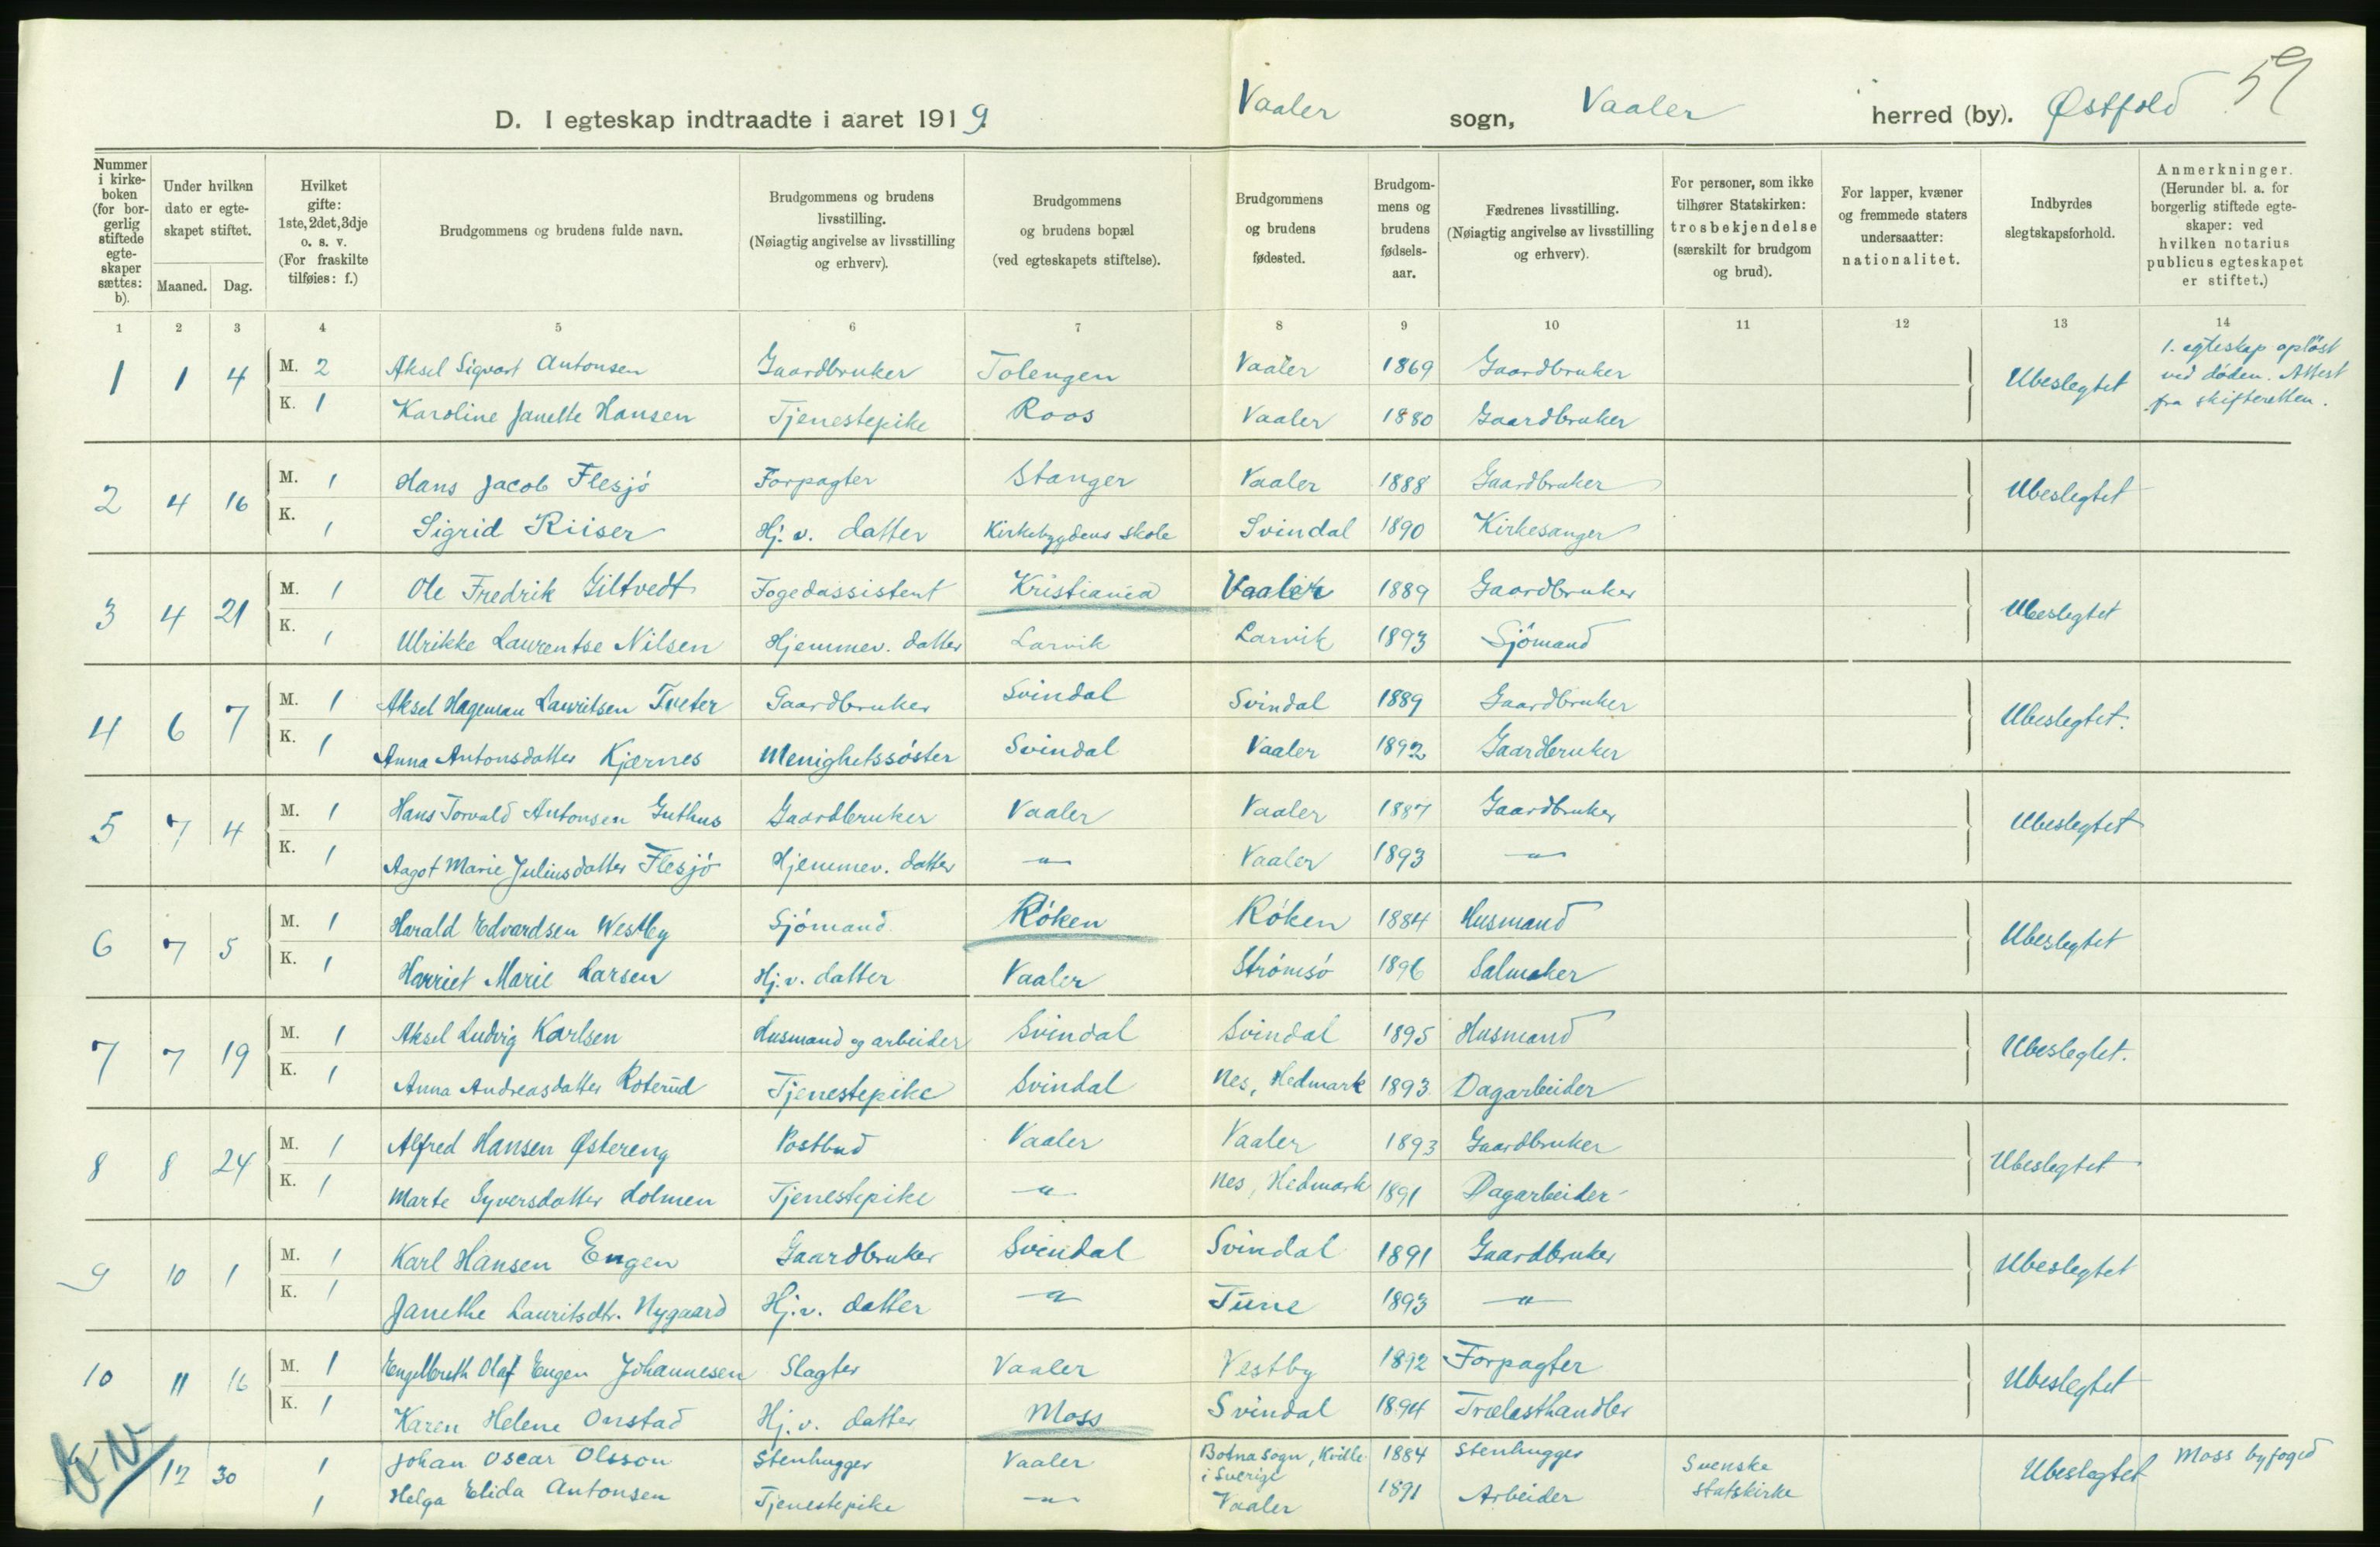 59
D. I egteskap indtraadte i aaret 1919. Vaaler sogn, Vaaler herred (by). Østfold
Nummer i kirke-boken (for bor-gerlig stiftede egte-skaper sættes: b).
Under hvilken dato er egte-skapet stiftet.
Maaned. Dag.
Hvilket gifte: 1ste, 2det, 3dje o. s. v. (For fraskilte tilføies: f.)
Brudgommens og brudens fulde navn.
Brudgommens og brudens livsstilling. (Nøiagtig angivelse av livsstilling og erhverv).
Brudgommens og brudens bopæl (ved egteskapets stiftelse).
Brudgommens og brudens fødested.
Brudgom-mens og brudens fødsels-aar.
Fædrenes livsstilling. (Nøiagtig angivelse av livsstilling og erhverv).
For personer, som ikke tilhører Statskirken: trosbekjendelse (særskilt for brudgom og brud).
For lapper, kvæner og fremmede staters undersaatter: nationalitet.
Indbyrdes slegtskapsforhold.
Anmerkninger. (Herunder bl. a. for borgerlig stiftede egte-skaper: ved hvilken notarius publicus egteskapet er stiftet.)
1 2 3 4 5 6 7 8 9 10 11 12 13 14
1 1 4 M. 2 Aksel Sigvart Antonsen Gaardbruker Tolengen Vaaler 1869 Gaardbruker Ubeslegtet 1. egteskap opløst ved døden. Attest fra skifteretten.
K. 1 Karoline Janette Hansen Tjenestepike Roos Vaaler 1880 Gaardbruker
2 4 16 M. 1 Hans Jacob Flesjó Forpagter Stanger Vaaler 1888 Gaardbruker Ubeslegtet
K. 1 Sigrid Riiser Hj. v. datter Kirkebygdens skole Svindal 1890 Kirkesanger
3 4 21 M. 1 Ole Fredrik Giltvedt Fogedassistent Kristiania Vaaler 1889 Gaardbruker Ubeslegtet
K. 1 Ulrikke Laurentse Nilsen Hjemmev. datter Larvik Larvik 1893 Sjómand
4 6 7 M. 1 Aksel Hageman Lauritsen Tveter Gaardbruker Svindal Svindal 1889 Gaardbruker Ubeslegtet.
K. 1 Anna Antonsdatter Kjærnes Menighetssóster Svindal Vaaler 1892 Gaardbruker
5 7 4 M. 1 Hans Torvald Antonsen Guthus Gaardbruker Vaaler Vaaler 1887 Gaardbruker Ubeslegtet
K. 1 Aagot Marie Juliusdatter Flesjó Hjemmev. datter —"— Vaaler 1893 —"—
6 7 5 M. 1 Harald Edvardsen Westby Sjómand Róken Róken 1884 Husmand Ubeslegtet
K. 1 Harriet Marie Larsen Hj. v. datter Vaaler Strómsó 1896 Salmaker
7 7 19 M. 1 Aksel Ludvig Karlsen Husmand og arbeider Svindal Svindal 1895 Husmand Ubeslegtet.
K. 1 Anna Andreasdatter Roterud Tjenestepike Svindal Nes, Hedmark 1893 Dagarbeider
8 8 24 M. 1 Alfred Hansen Østereng Postbud Vaaler Vaaler 1893 Gaardbruker Ubeslegtet
K. 1 Marte Syversdatter Holmen Tjenestepike —"— Nes, Hedmark 1891 Dagarbeider
9 10 1 M. 1 Karl Hansen Engen Gaardbruker Svindal Svindal 1891 Gaardbruker Ubeslegtet
K. 1 Janethe Lauritsdtr. Nygaard Hj. v. datter —"— Tune 1893 —"—
10 11 16 M. 1 Engelbreth Olaf Engen Johannesen Slagter Vaaler Vestby 1892 Forpagter Ubeslegtet
K. 1 Karen Helene Onstad Hj. v. datter Moss Svindal 1894 Trælasthandler
12 30 1 Johan Oscar Olsson Stenhugger Vaaler Botna Sogn, Kville i Sverige 1884 Stenhugger Svenske statskirke Ubeslegtet Moss byfoged
1 Helga Elida Antonsen Tjenestepike —"— Vaaler 1891 Arbeider